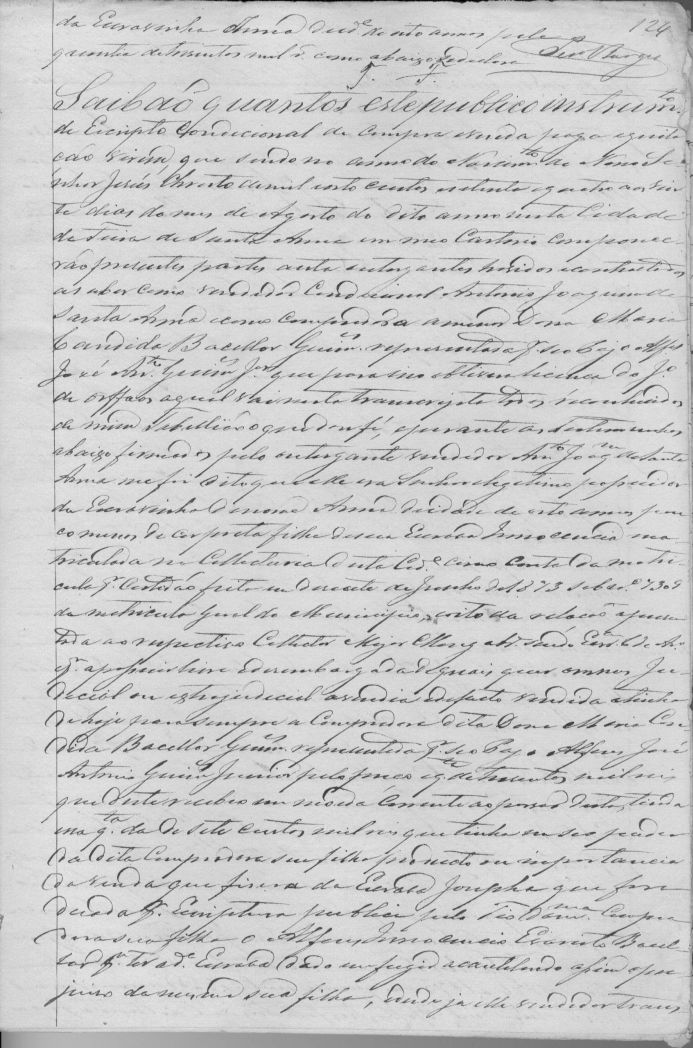 124
da Escravinha Anna de id.e de oito annos pela
quantia de trezentos mil r.s como abaixo se declara
Saibão quantos este publico instrum.to
de Escripto Condicional de compra e venda paga e quita
ção virem, que sendo no anno do Nascim.to de Nosso Se
nhor Jesús Christo de mil oito centos e setenta e quatro aos vin
te dias do mez de Agosto do dito anno nesta Cidade
de Feira de Santa Anna em meo Cartorio comparece
rão presentes partes outorgantes havidos e contractados
a saber como vendedor Condicional Antonio Joaquim de
Santa Anna e como compradora a menor Dona Maria
Candida Bacellar Guim.es representada p.r seo Pay o Alfes
José An.to Guim.es J.or que para isso obteve licença do J.o
de orffãos a qual vai nesta transcripta todos reconhecidos
de mim Tabellião o que dou fé, e perante as testemunhas
abaixo firmados pelo outorgante vendedor An.to Joaq.m de Santa
Anna me foi dito que elle era Senhor e legitimo possuidor
da Escravinha de nome Anna de idade de oito annos pou
co menos de cor preta filha de sua Escrava Innocencia ma
triculada na Collectoria desta Cid.e como consta da matri
cula p.r Certidão feita em dezesete de Junho de 1873 sob n.o 7309
da matricula geral do Municipio, e oito da relação apresen
tada ao respectivo Collector Major
q.' a possue livre e desembargada de quaes quer onnus Ju
decial ou extrajudecial a vendia e de facto vendida a tinha
de hoje para sempre a Compradora dita Dona Maria Can
dida Bacellar Guim.es representada p.r seo Pay o Alferes José
Antonio Guim.es Junior pelo preço e q.tia de trezentos mil reis
que deste recebeo em moeda corrente ao passar desta, tirada
na q.tia da de sete centos mil reis que tinha em seo poder
da dita Compradora sua filha producto ou importancia
da venda que fizera da Escrava Josepha que fora
doada p.r Escriptura publica pelo Tio da m.ma Compra
dora sua filha o Alferes Innocencio Evaristo Bacel
lar p.r ter a d.a Escrava dado em fugida acautelando assim o pre
juizo da mesma sua filha, e onde ja elle vendedor trans